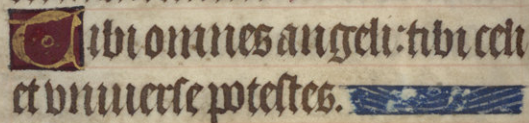 Tibi omnes angeli: tibi celi
et vniuerse potestes.